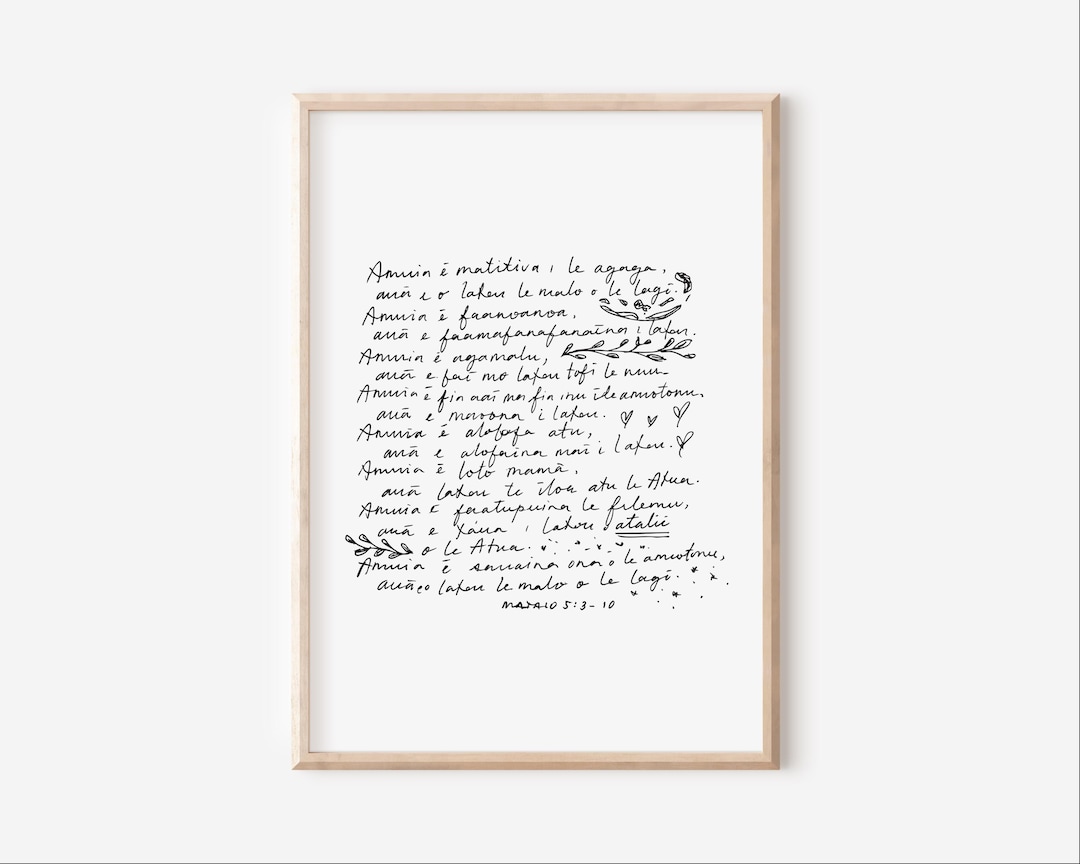 Amuia ē matitiva i le agaga,
auā e o latou le malo o le lagi.
Amuia ē faanoanoa,
auā e faamafanafanaina i latou.
Amuia ē agamalu,
auā e fai mo latou tofi le nuu
Amuia ē fia aai ma fia inu i le amiotonu,
auā e maoona i latou.
Amuia ē alofofa atu,
auā e alofaina mai i latou.
Amuia ē loto mamā,
auā latou te iloa atu le Atua.
Amuia ē faatupuina le filemu,
auā e taua i latou o atalii
o le Atua.
Amuia ē sauaina ona o le amiotonu,
auā e o latou le malo o le lagi.
MATAIO 5:3-10